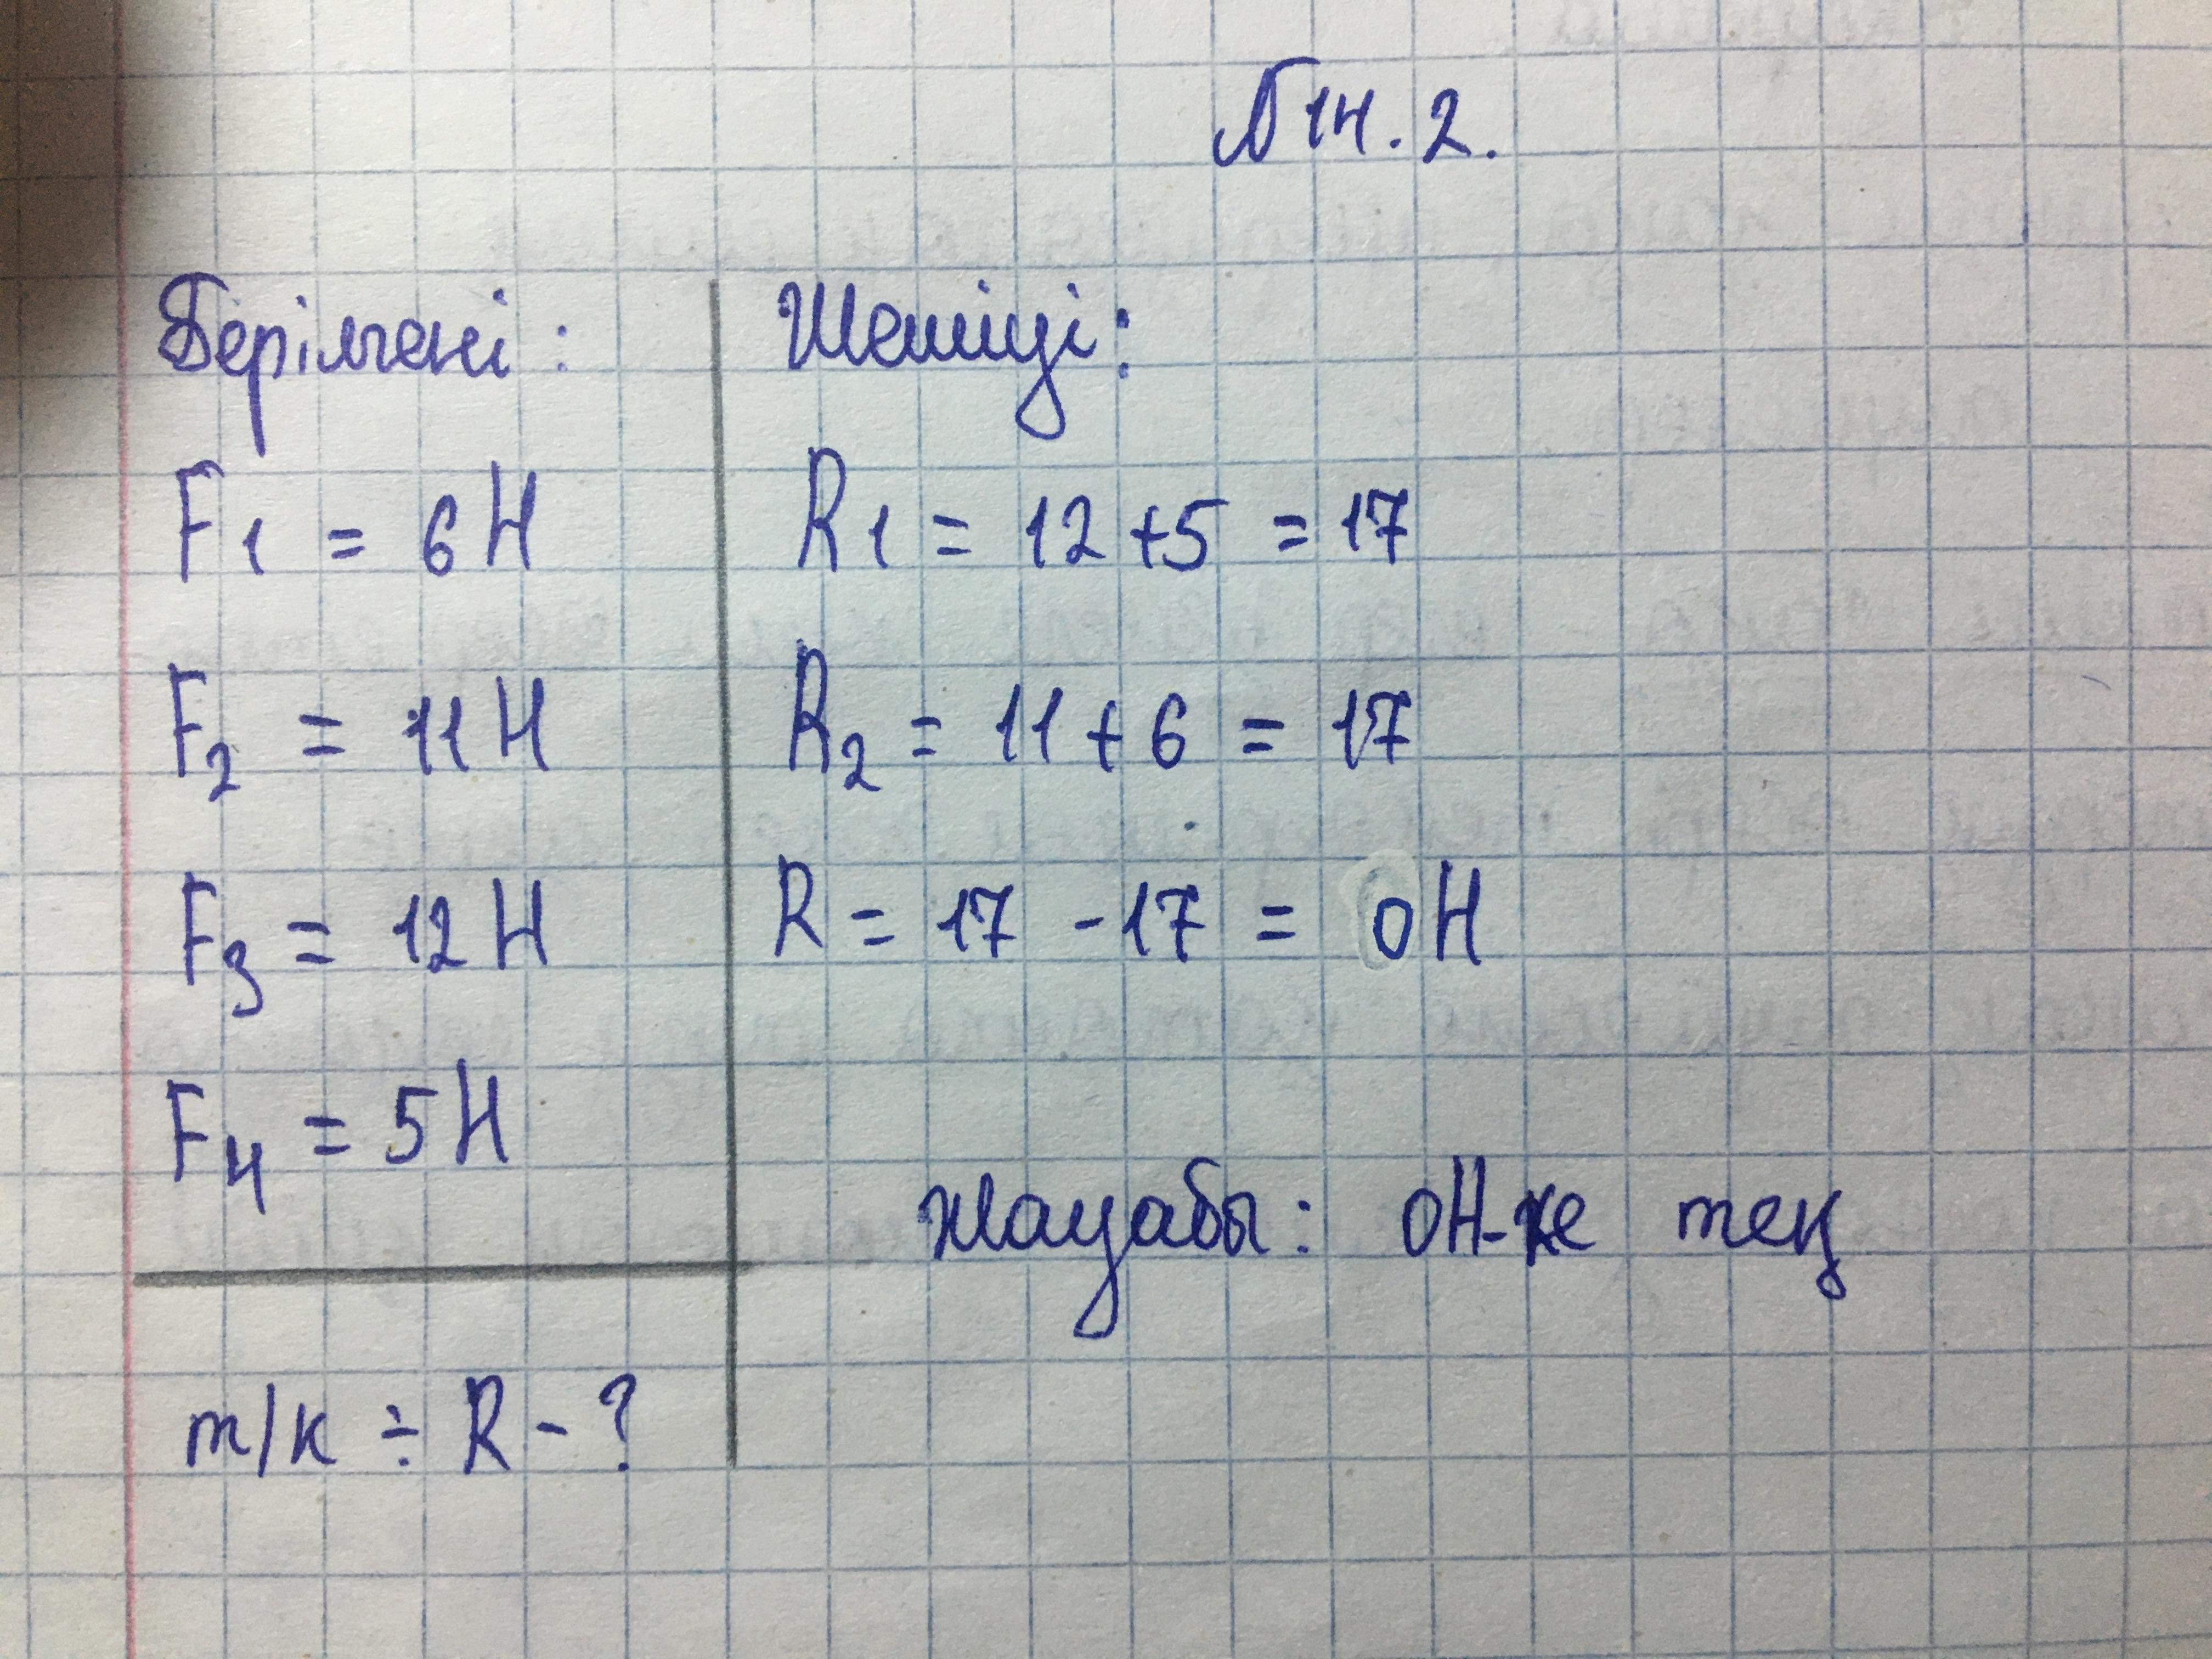 №14.2.
Берілгені:
F1 = 6Н
F2 = 11Н
F3 = 12Н
F4 = 5Н
т/к ÷ R - ?
Шешуі:
R1 = 12+5 = 17
R2 = 11+6 = 17
R = 17 -17 = 0Н
Жауабы: 0Н-ке тең